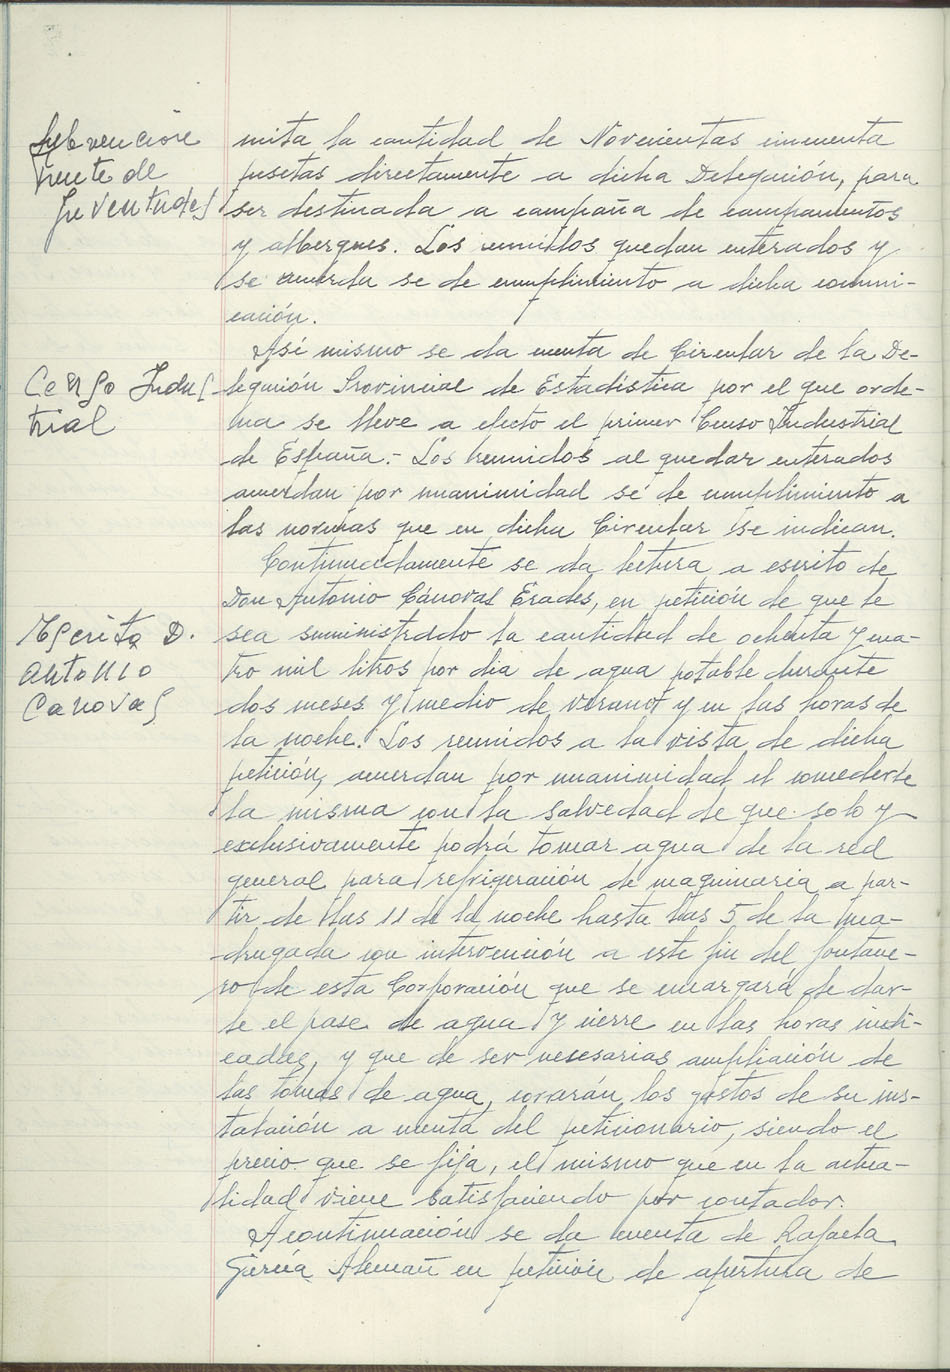 Subvencion
frente de
Juventudes
mita la cantidad de Novecientas cincuenta
pesetas directamente a dicha Delegación, para
ser destinada a campaña de campamentos
y albergues. Los reunidos quedan enterados y
se acuerda se de cumplimiento a dicha comuni-
cación.
Censo Indus
trial
Así mismo se da cuenta de Circular de la De-
legación Provincial de Estadística por el que orde-
na se lleve a efecto el primer Censo Industrial
de España.- Los reunidos al quedar enterados
acuerdan por unanimidad sé de cumplimiento a
las normas que en dicha Circular se indican.
Continuadamente se da lectura a escrito de
Don Antonio Cánovas Erades, en petición de que le
Escrito D.
Antonio
Canovas
sea suministrado la cantidad de ochenta y cua-
tro mil litros por dia de agua potable durante
dos meses y medio de verano y en las horas de
la noche. Los reunidos a la vista de dicha
petición, acuerdan por unanimidad el concederle
la misma con la salvedad de que solo y
exclusivamente podrá tomar agua de la red
general para refrigeración de maquinaria a par-
tir de las 11 de la noche hasta las 5 de la ma-
drugada con intervención a este fin del fontane-
ro de esta Corporación que se encargará de dar-
le el pase de agua y cierre en las horas indi-
cadas, y que de ser necesarias ampliación de
las tomas de agua, correrán los gastos de su ins-
talación a cuenta del peticionario, siendo el
precio que se fija, el mismo que en la actua-
lidad viene satisfaciendo por contador.
A continuación se da cuenta de Rafaela
García Alemañ en petición de apertura de